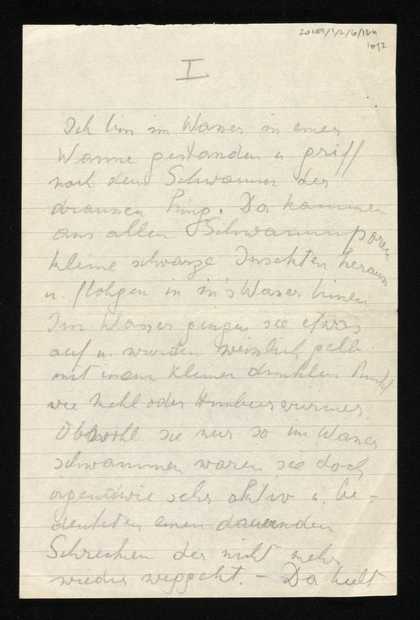 I
Ich bin im Wasser in einer
Wanne gestanden u griff
nach dem Schwamm der
draussen hing. Da kammen
aus allen Schwammporen
kleine schwarze Insekten heraus
u. flohgen in in's Wasser hinein
Im Wasser gingen sie etwas
auf u. wurden weisslich gelb
mit einem kleinen dunklen Punkt
wie Mehl oder Himbeerwürmer
Obwohl sie nur so im Wasser
schwammen waren sie doch
irgendwie sehr aktiv u. be-
deuteten einen dauernden
Schrecken der nicht mehr
wieder weggeht. – Da hielt